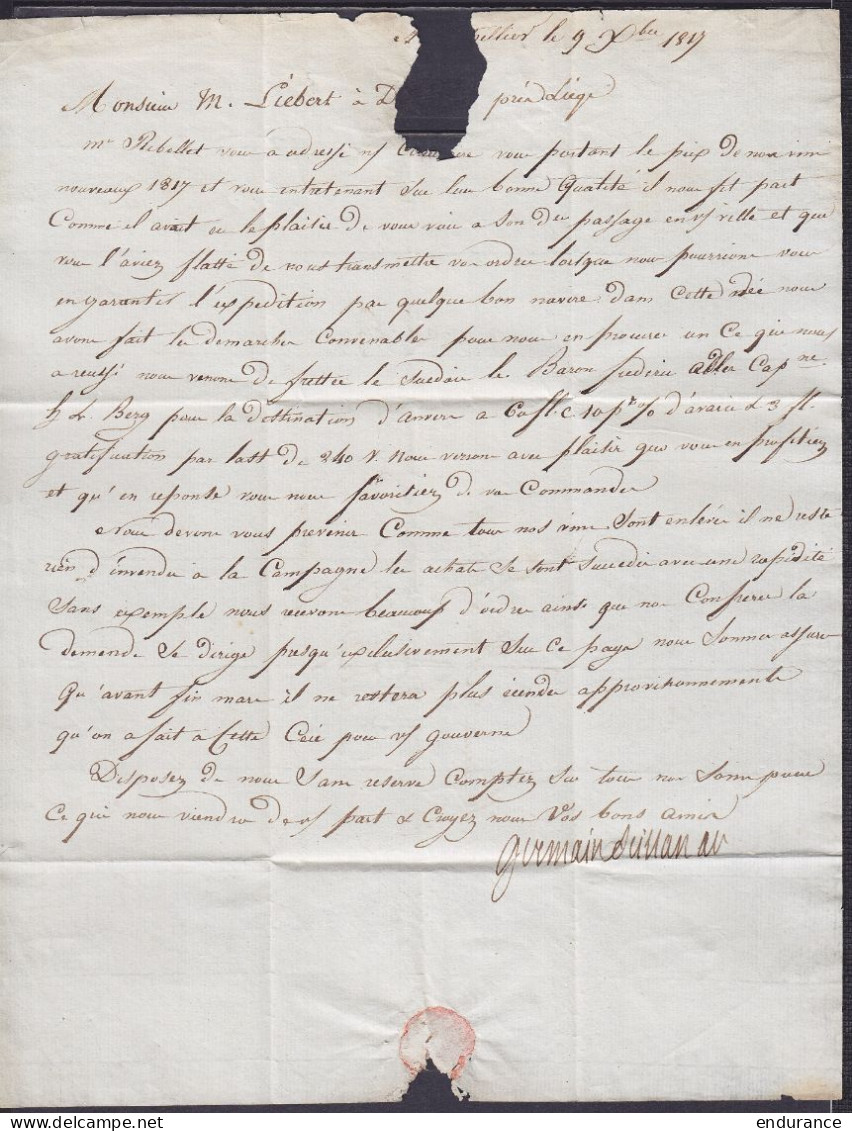 ellier le 9 Xbre 1817
Monsieur M. Liebert à D près Liége
Mr Rebellet vous a adressé n/ vous portant le prix de nos vins
nouveaux 1817 et vous entretenant sur leur bonne qualité il nous fit part
Comme il avait eu le plaisir de vous voir a son der passage en v/ ville et que
vous l'aviez flatté de nous transmettre vos ordres lorsque nous pourrions vous
en garantir l'expedition par quelque bon navire dans Cette idée nous
avons fait les demarches Convenables pour nous en procurer un Ce qui nous
a reussi nous venons de fretter le suedois le Baron frederic adler Capne
Berg pour la destination d'anvers a 10 pr % d'avarie & 3 fl.
gratification par last de 240 V. Nous verrons avec plaisir que vous en profitiez
et qu'en reponse vous nous favoritiez de vos Commandes
Nous devons vous prevenir Comme tous nos vins sont enlevés il ne reste
rien d'invendu a la Campagne les achats se sont succedés avec une rapidité
sans exemple nous recevons beaucoup d'ordres ainsi que nos Confreres la
demende se dirige presqu'exclusivement sur ce pays nous sommes assurés
qu'avant fin mars il ne restera plus approvisionnements
qu'on a fait à Cette Ceci pour v/ gouverne
Disposez de nous sans reserve Comptez sur tous nos soins pour
Ce qui nous viendra de v/ part & Croyez nous Vos bons amis
germain
endurance